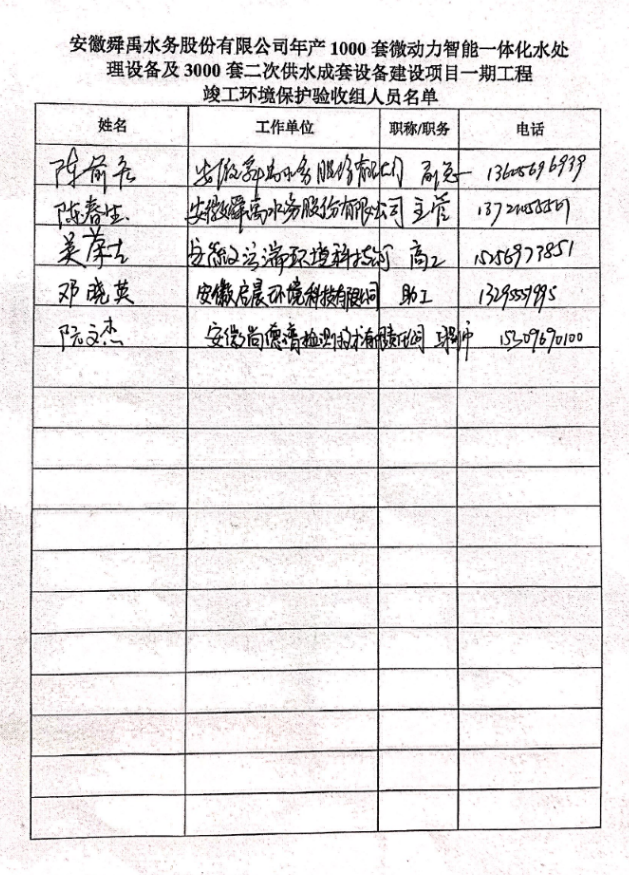 安徽舜禹水务股份有限公司年产 1000 套微动力智能一体化水处
理设备及 3000 套二次供水成套设备建设项目一期工程
竣工环境保护验收组人员名单
姓名 工作单位 职称/职务 电话
陈前 安徽舜禹水务股份有限公司 副总 13605696939
陈春生 安徽舜禹水务股份有限公司 主管
吴 环境科技 高工 15256973851
邓晓英 安徽启晨环境科技有限公司 助工
阮文杰 安徽尚德谱检测技术有限责任公司 工程师 15309690100